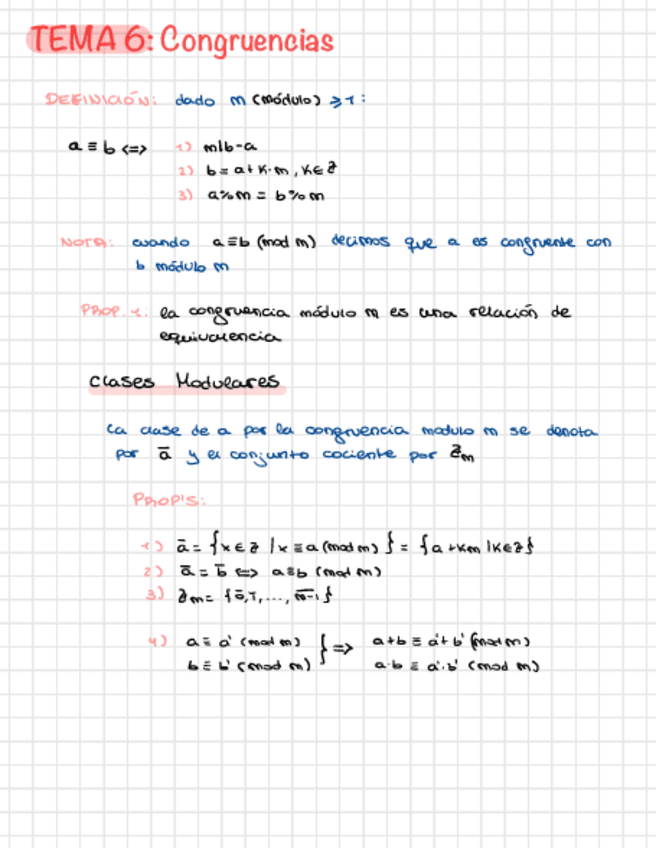 TEMA 6: Congruencias
DEFINICIÓN: dado m (módulo) ≥ 1:
a ≡ b <=> 1) m|b-a
2) b = a + K·m, K ∈ Z
3) a%m = b%m
NOTA: cuando a ≡ b (mod m) decimos que a es congruente con
b módulo m
PROP. 1. la congruencia módulo m es una relación de
equivalencia
Clases Modulares
La clase de a por la congruencia modulo m se denota
por ā y el conjunto cociente por Zm
PROP'S:
1) ā = {x ∈ Z | x ≡ a (mod m)} = {a + Km | K ∈ Z}
2) ā = b̄ <=> a ≡ b (mod m)
3) Zm = {0̄, 1̄, ..., m-1̄}
4) a ≡ a' (mod m) } => a+b ≡ a'+b' (mod m)
b ≡ b' (mod m) a·b ≡ a'·b' (mod m)